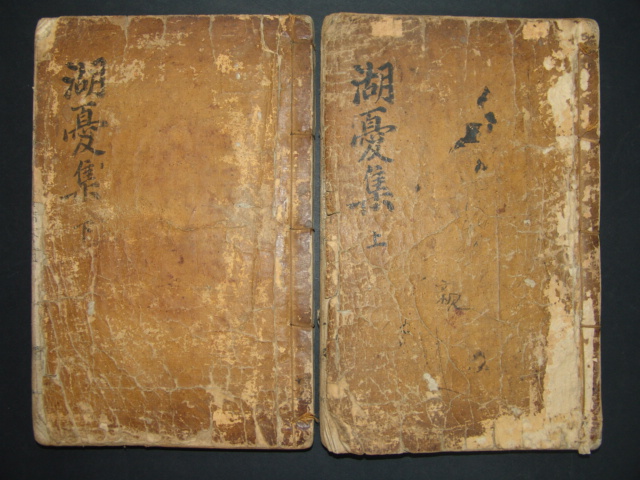 湖憂集
上
湖憂集
下